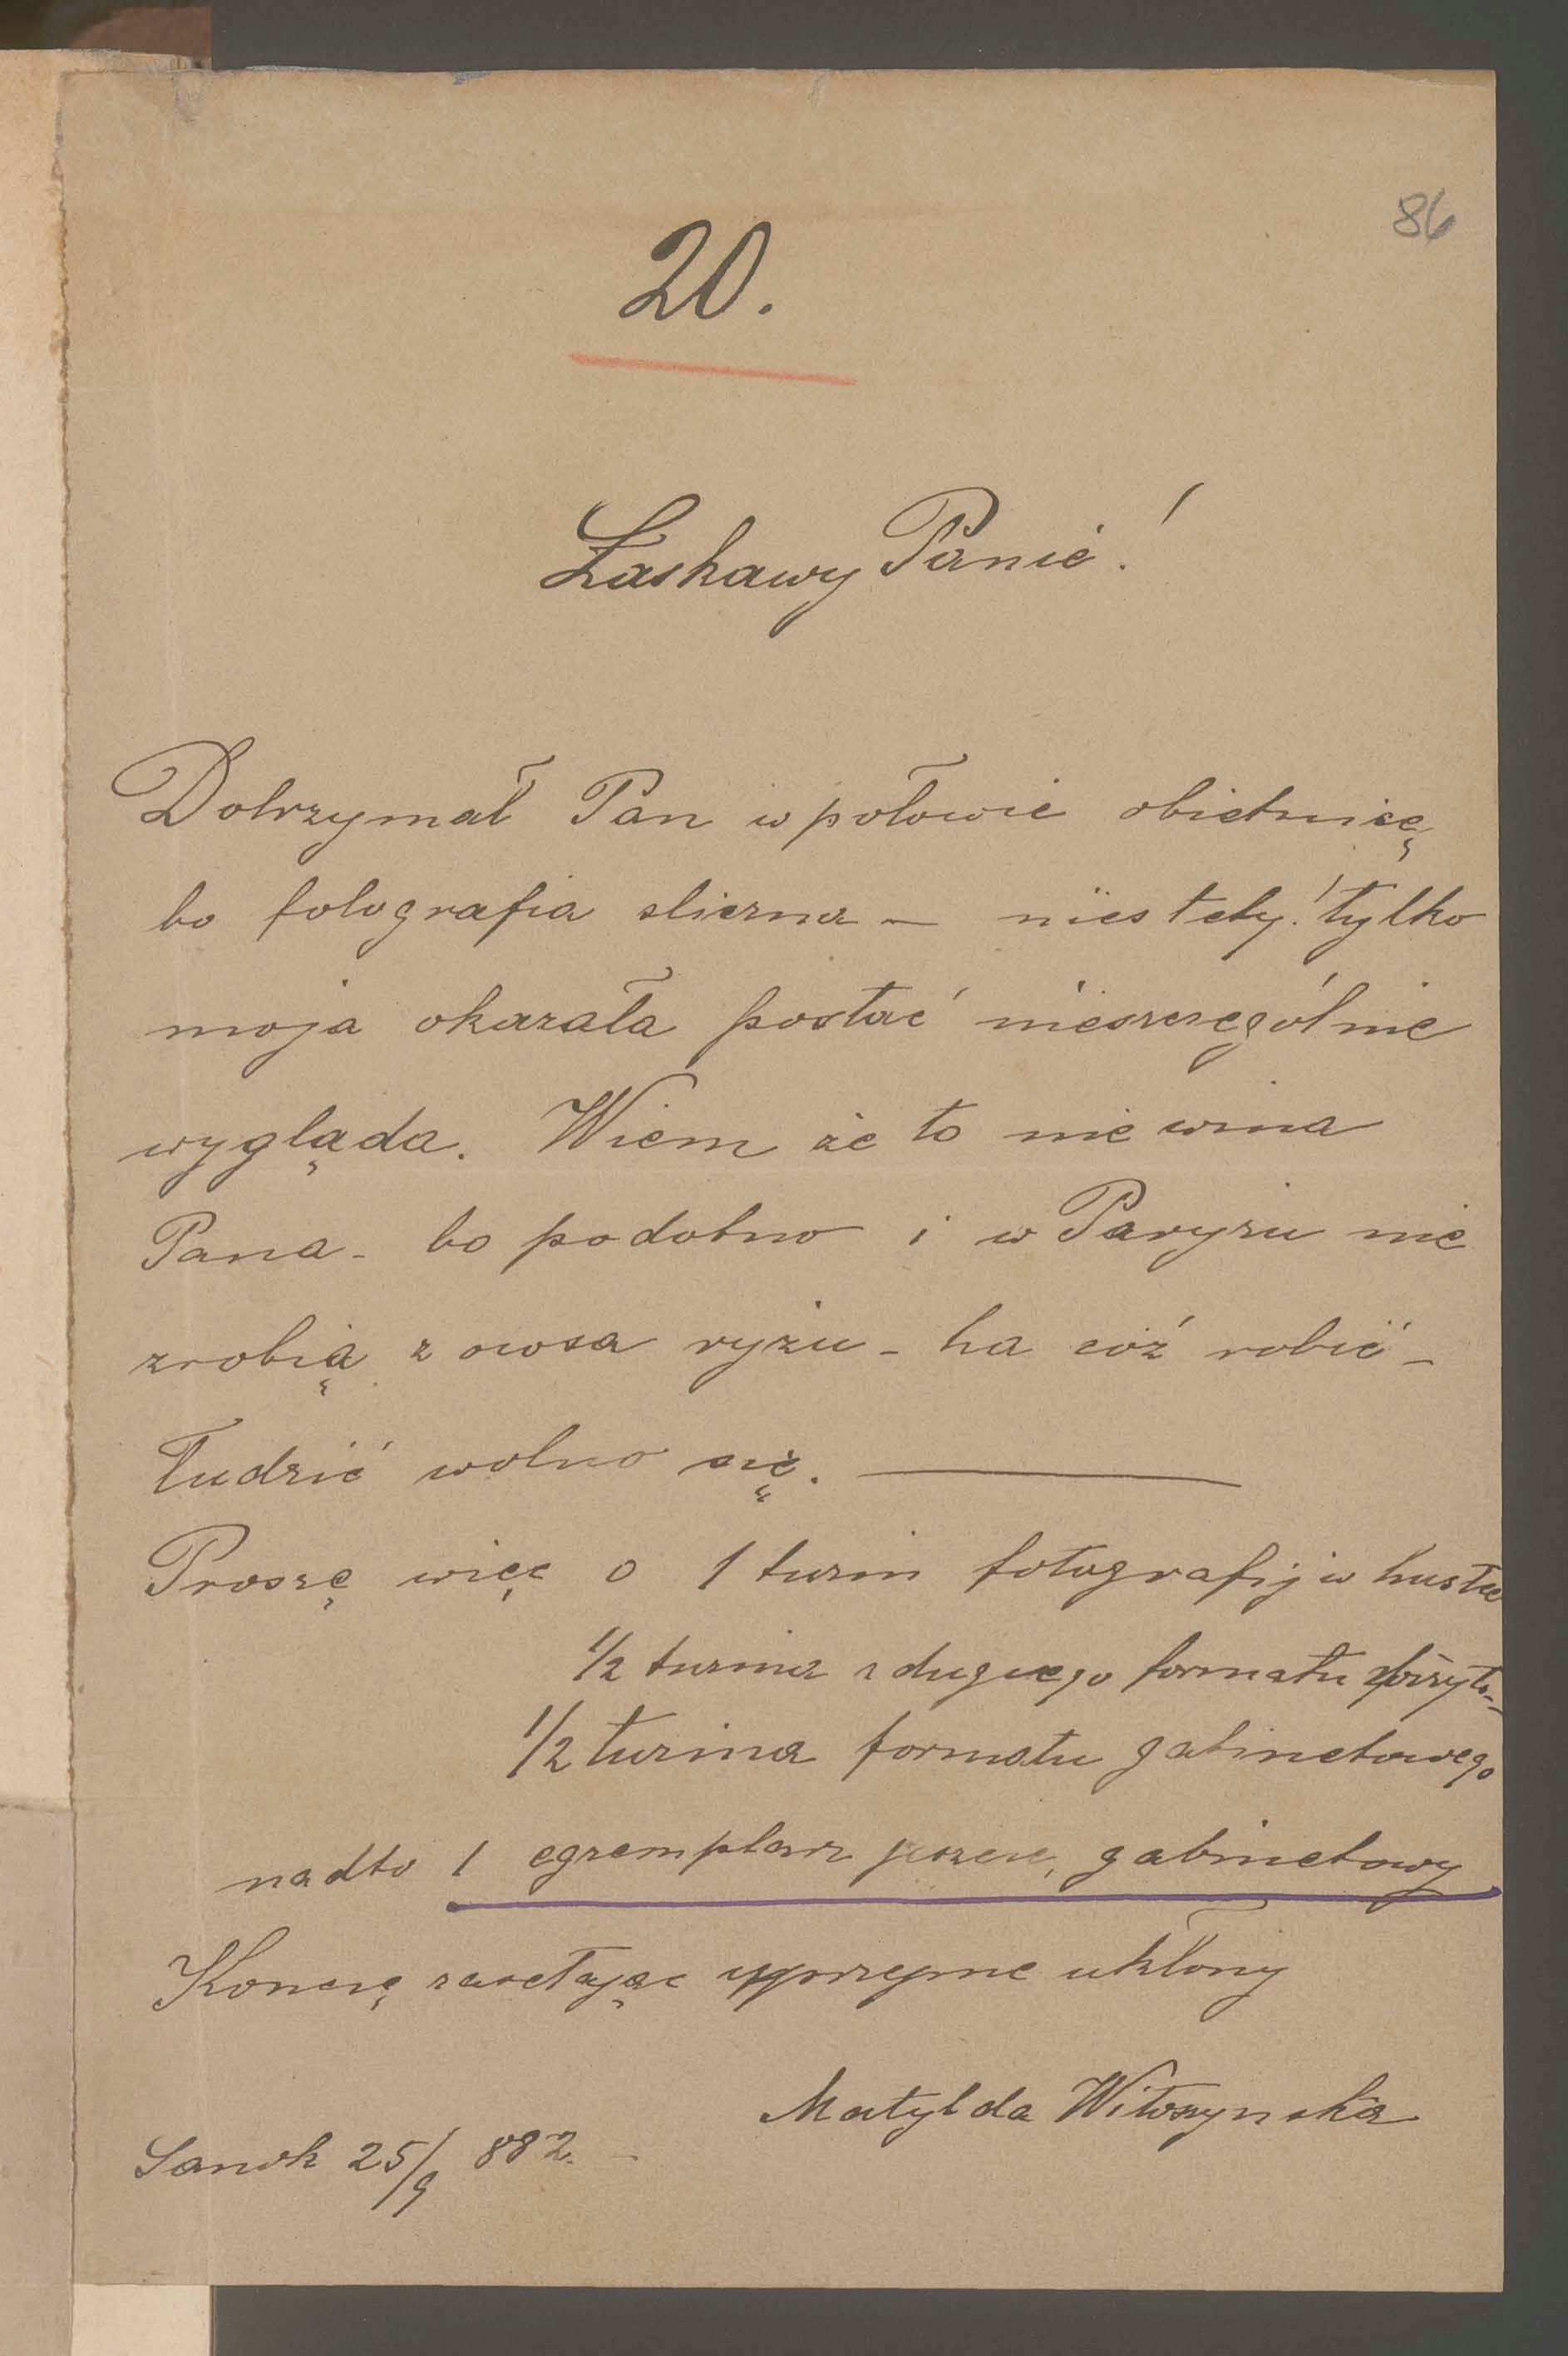 86
20.
Łaskawy Panie!
Dotrzymał Pan w połowie obietnicę
bo fotografia sliczna — niestety! tylko
moja okazała postać nieszczególnie
wygląda. Wiem że to nie wina
Pana - bo podobno i w Paryzu nie
zrobią z owsa ryżu - ha cóż robić -
Łudzić wolno się. —
Proszę więc o 1 tuzin fotografij w
1/2 tuzina z formatu
1/2 tuzina formatu gabinetowego
nadto 1 egzemplarz gabinetowy
Konczę zasełając uprzejme ukłony
Matylda Witoszynska
Sanok 25/9 882. -